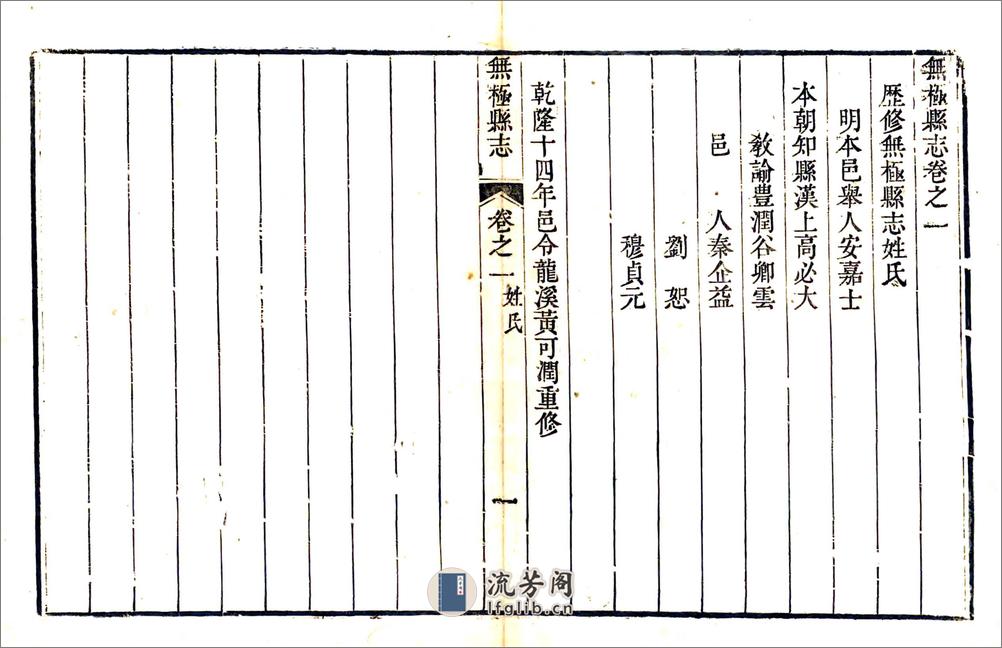 無極縣志卷之一
歷修無極縣志姓氏
明本邑舉人安嘉士
本朝知縣漢上高必大
教諭豊潤谷卿雲
邑人秦企益
劉恕
穆貞元
乾隆十四年邑令龍溪黃可潤重修
無極縣志
卷之一
姓氏
一
流芳阁
lfglib.cn